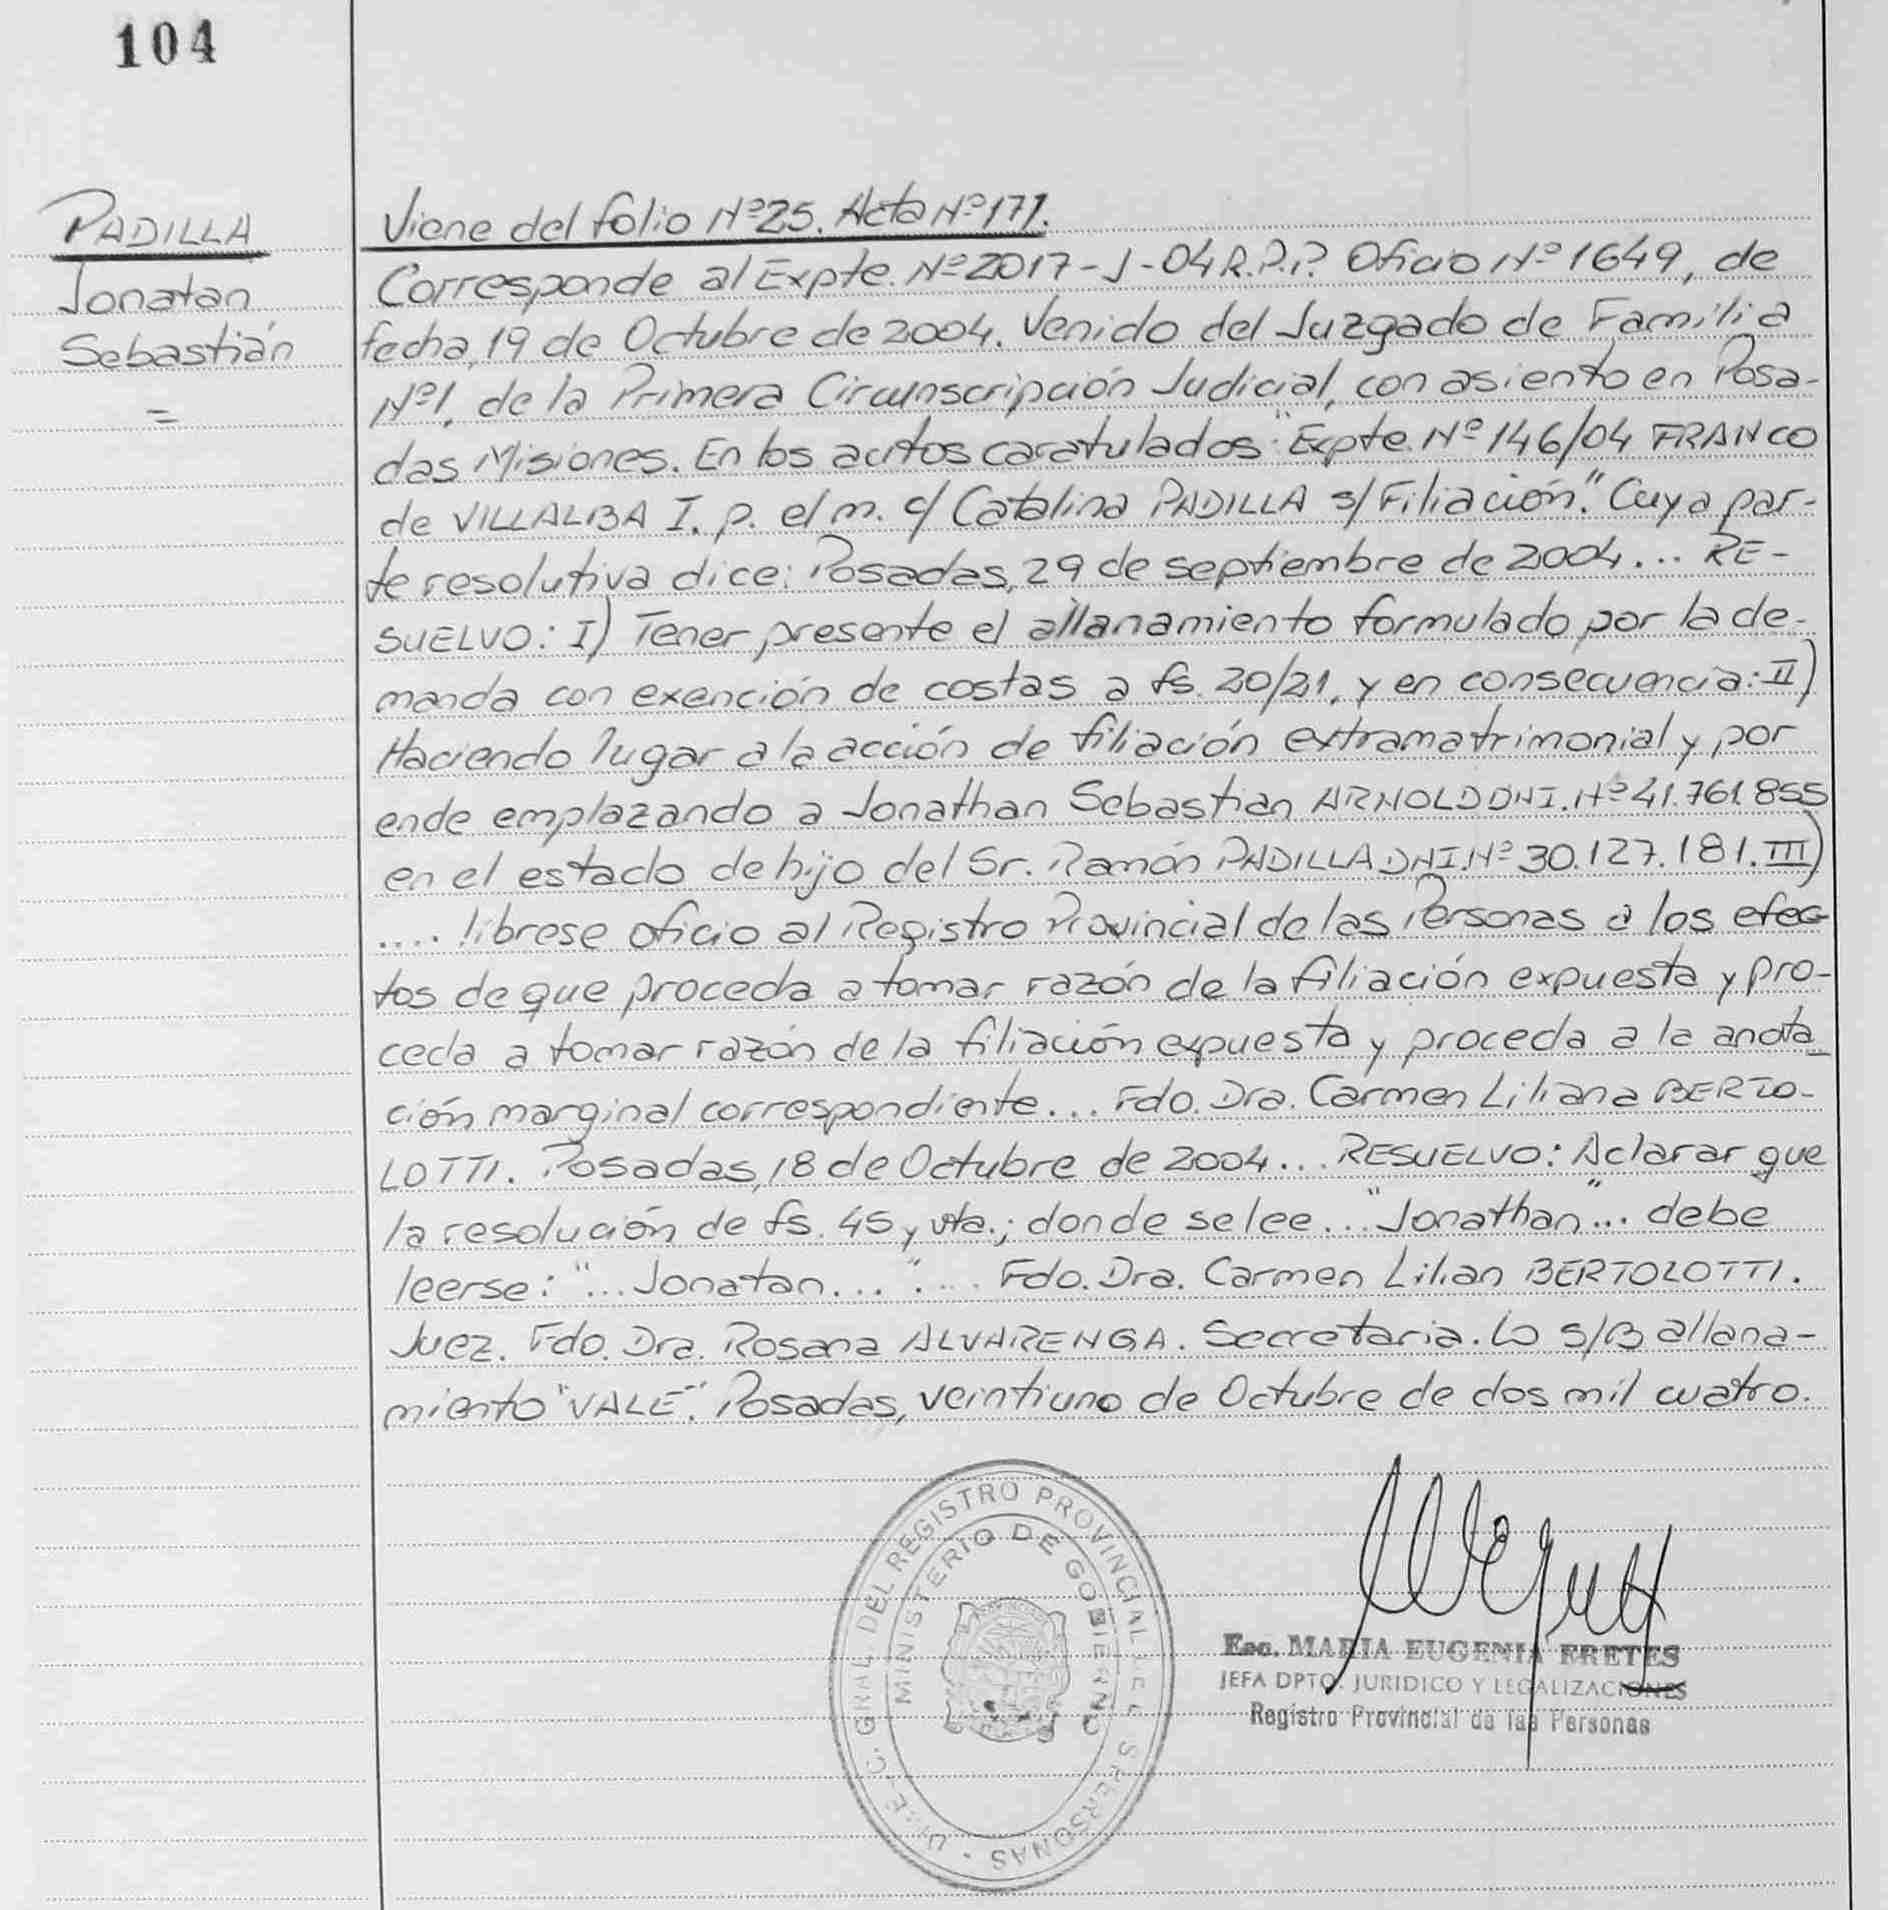 104
PADILLA
Jonatan
Sebastián
=
Viene del folio Nº25. Acta Nº171.
Corresponde al Expte. Nº2017-J-04 R.P.P. Oficio Nº1649, de
fecha, 19 de Octubre de 2004. Venido del Juzgado de Familia
Nº1, de la Primera Circunscripción Judicial, con asiento en Posa-
das Misiones. En los autos caratulados "Expte. Nº146/04 FRANCO
de VILLALBA I. p. el m. c/ Catalina PADILLA s/Filiación." Cuya par-
te resolutiva dice: Posadas, 29 de septiembre de 2004... RE-
SUELVO: I) Tener presente el allanamiento formulado por la de-
manda con exención de costas a fs. 20/21, y en consecuencia: II)
Haciendo lugar a la acción de filiación extramatrimonial y por
ende emplazando a Jonathan Sebastian ARNOLD DNI. Nº41.761.855
en el estado de hijo del Sr. Ramón PADILLA DNI. Nº 30.127.181. III)
.... líbrese oficio al Registro Provincial de las Personas a los efec-
tos de que proceda a tomar razón de la filiación expuesta y pro-
ceda a tomar razón de la filiación expuesta y proceda a la anota_
ción marginal correspondiente... Fdo. Dra. Carmen Liliana BERTO-
LOTTI. Posadas, 18 de Octubre de 2004... RESUELVO: Aclarar que
la resolución de fs. 45 y vta.; donde se lee... "Jonathan"... debe
leerse: "...Jonatan..."... Fdo. Dra. Carmen Lilian BERTOLOTTI.
Juez. Fdo. Dra. Rosana ALVARENGA. Secretaria. Lo S/B allana-
miento "VALE". Posadas, veintiuno de Octubre de dos mil cuatro.
GRAL. DEL REGISTRO PROVINCIAL DE PERSONAS
MINISTERIO DE GOBIERNO
Esc. MARIA EUGENIA FRETES
JEFA DPTO. JURIDICO Y LEGALIZACIONES
Registro Provincial de las Personas